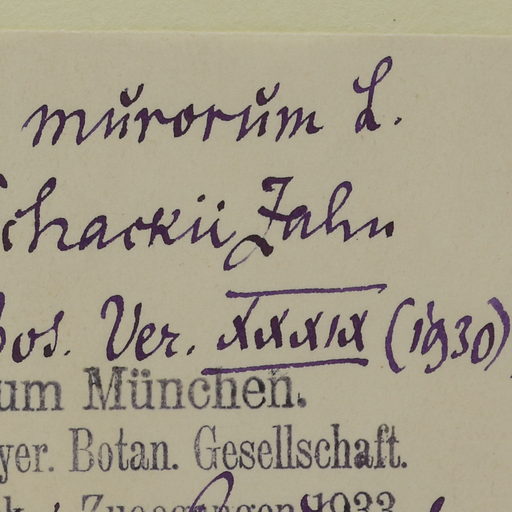 murorum L.
Schackii Zahn
bos. Ver. XXXIX (1930)
um München.
yer. Botan. Gesellschaft.
1933